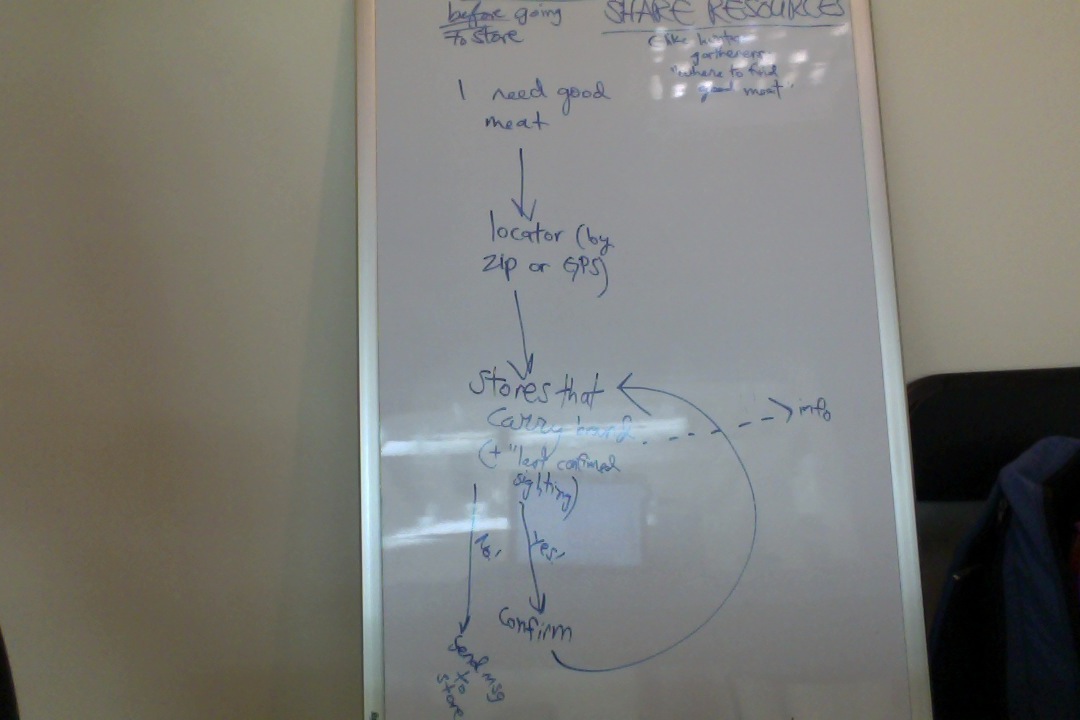 before going
To store
SHARE RESOURCES
(like hunter
gatherers
"where to find
good meat"
I need good
meat
locator (by
zip or GPS)
Stores that
carry brand
info
(+ "last confirmed
sighting)
No,
Yes,
Confirm
Send msg
to
store